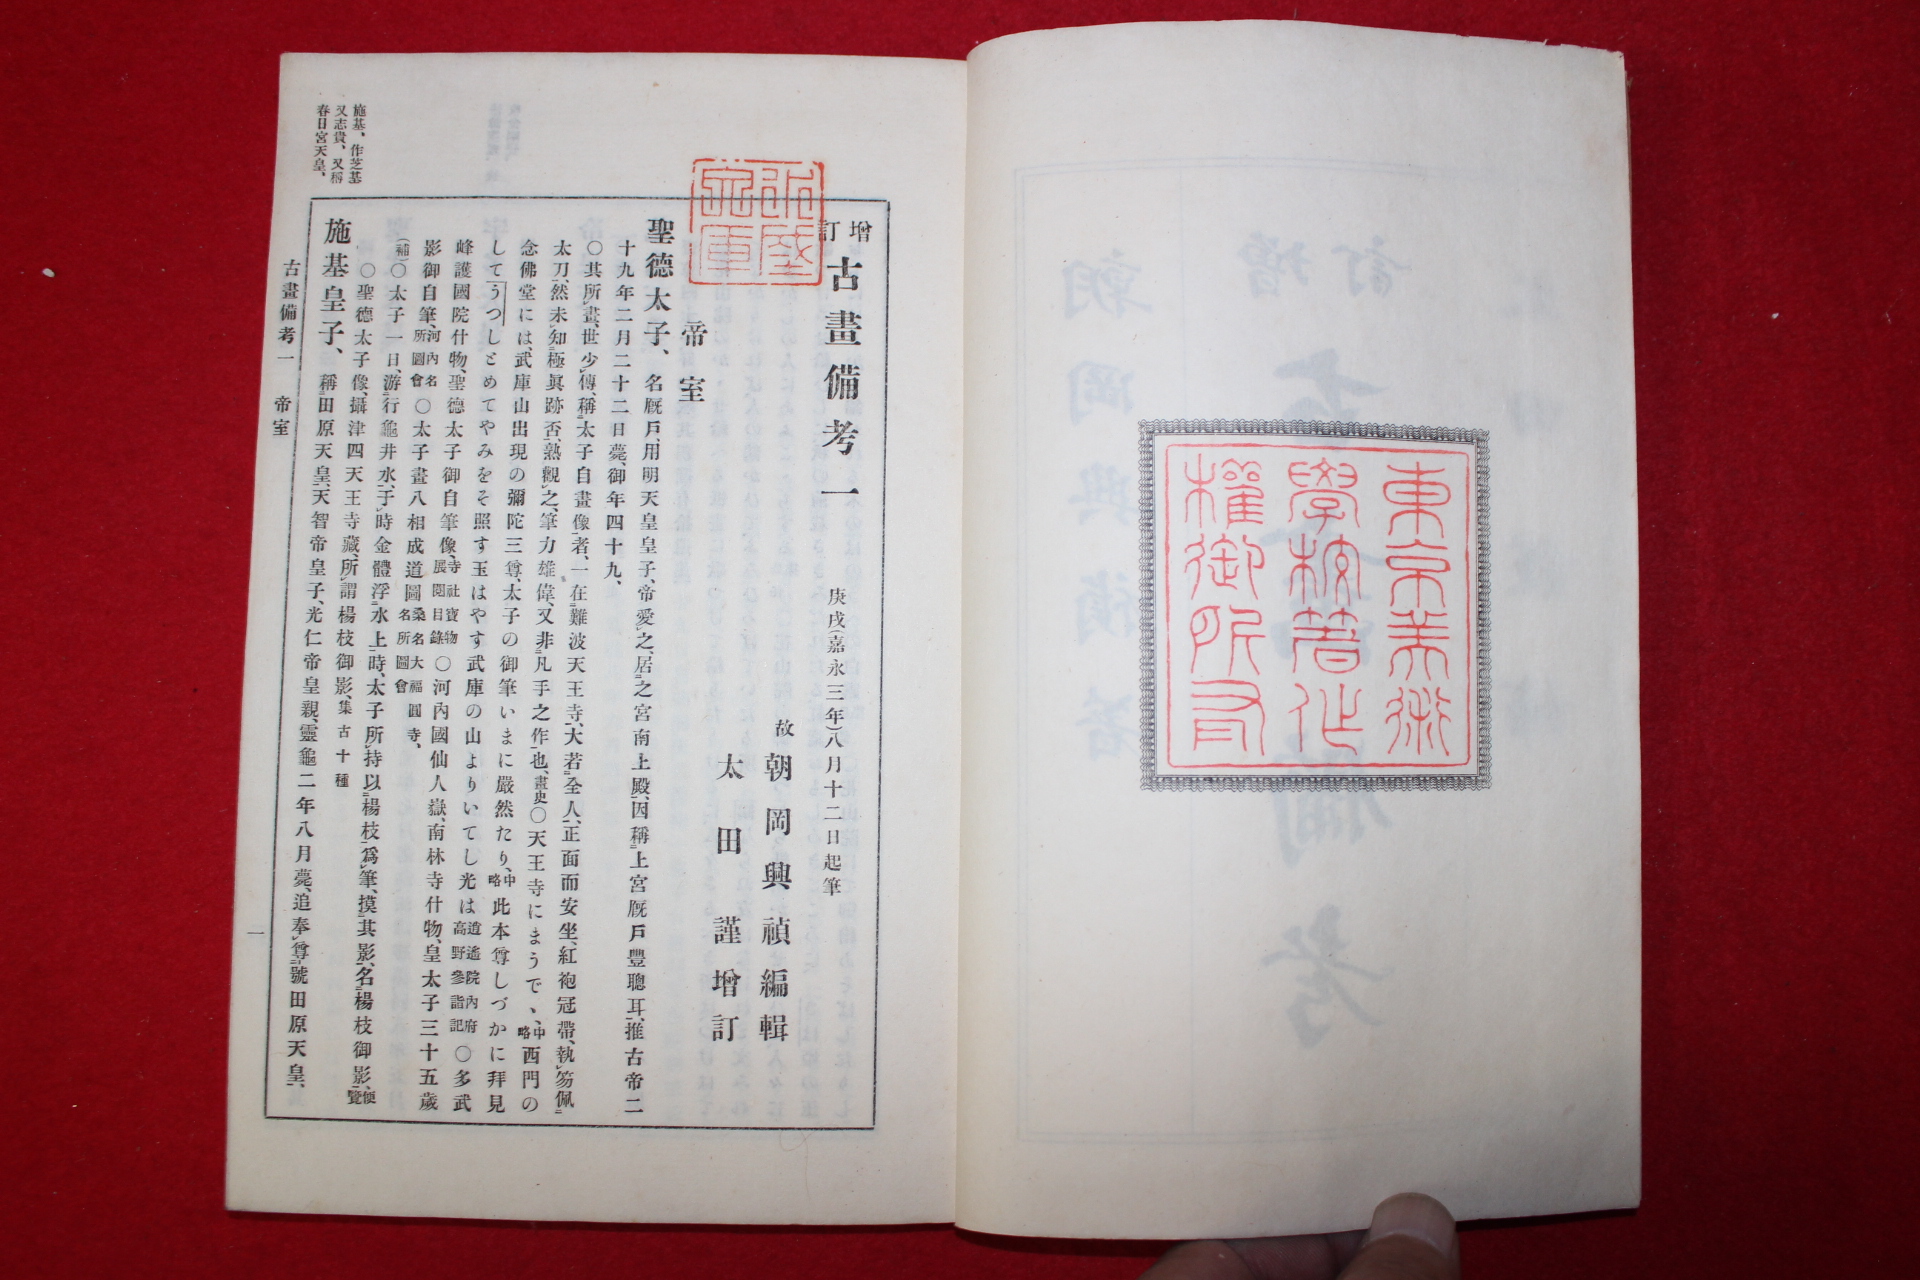 東京美術
學校著作
權御所有
增訂 古畫備考一
庚戌(嘉永三年)八月十二日起筆
故 朝岡興禎編輯
太田謹增訂
帝室
聖德太子、名厩戶、用明天皇皇子、帝愛之、居之宮南上殿、因稱上宮厩戶豐聰耳、推古帝二
十九年二月二十二日薨、御年四十九、
○其所畫、世少傳、稱太子自畫像者、一在難波天王寺、大若全人、正面而安坐、紅袍冠帶、執笏佩
太刀、然未知極眞跡否、熟觀之、筆力雄偉、又非凡手之作也、畫史○天王寺にまうで、中略西門の
念佛堂には、武庫山出現の彌陀三尊、太子の御筆いまに嚴然たり、中略此本尊しづかに拜見
して うつしとめてやみをそ照す玉はやす武庫の山よりいてし光は 逍遙院內府高野參詣記○多武
峰護國院什物、聖德太子御自筆像、寺社寶物展閱目錄○河內國仙人嶽、南林寺什物、皇太子三十五歲
影御自筆、河內名所圖會○太子畫八相成道圖 桑名大福圓寺、名所圖會
(補)○太子一日、游行龜井水、于時金體浮水上、時、太子所持以楊枝爲筆、摸其影、名楊枝御影、便覽
○聖德太子像、攝津四天王寺藏、所謂楊枝御影、集古十種
施基皇子、稱田原天皇、天智帝皇子、光仁帝皇親、靈龜二年八月薨、追奉尊號田原天皇、
施基、作芝基
又志貴、又稱
春日宮天皇、
古畫備考一 帝室
一